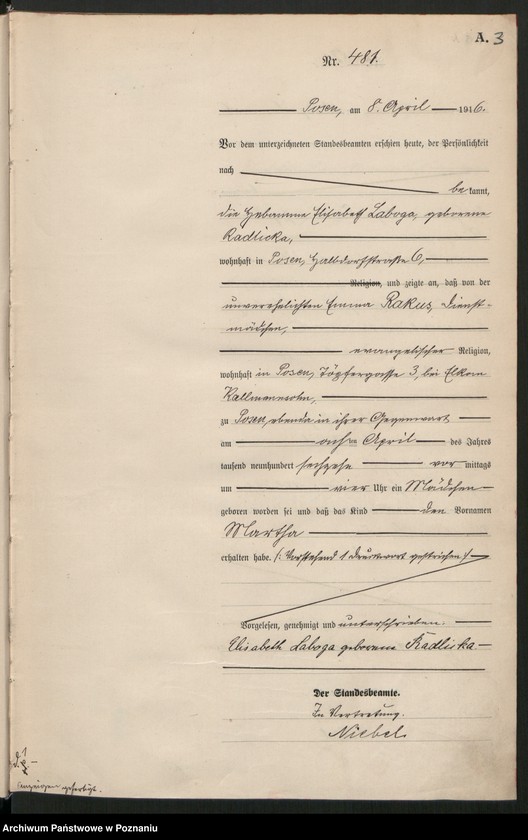 A. 3
Nr. 481.
Posen, am 8. April 1916.
Vor dem unterzeichneten Standesbeamten erschien heute, der Persönlichkeit
nach
be kannt,
die Hebamme Elisabeth Laboga, geborene
Radlicka,
wohnhaft in Posen, Halbdorfstraße 6,
Religion, und zeigte an, daß von der
unverehelichten Emma Rakus, Dienst-
mädchen,
evangelischer Religion,
wohnhaft in Posen, Töpfergasse 3, bei Elkan
Kallmannsohn,
zu Posen, ebenda in ihrer Gegenwart
am achten April des Jahres
tausend neunhundert sechzehn vor mittags
um vier Uhr ein Mädchen
geboren worden sei und daß das Kind den Vornamen
Martha
erhalten habe. /: Vorstehend 1 Druckwort gestrichen :/
Vorgelesen, genehmigt und unterschrieben.
Elisabeth Laboga geborene Radlicka
Der Standesbeamte.
In Vertretung.
Niebel
Anzeigen gefertigt.
Archiwum Państwowe w Poznaniu